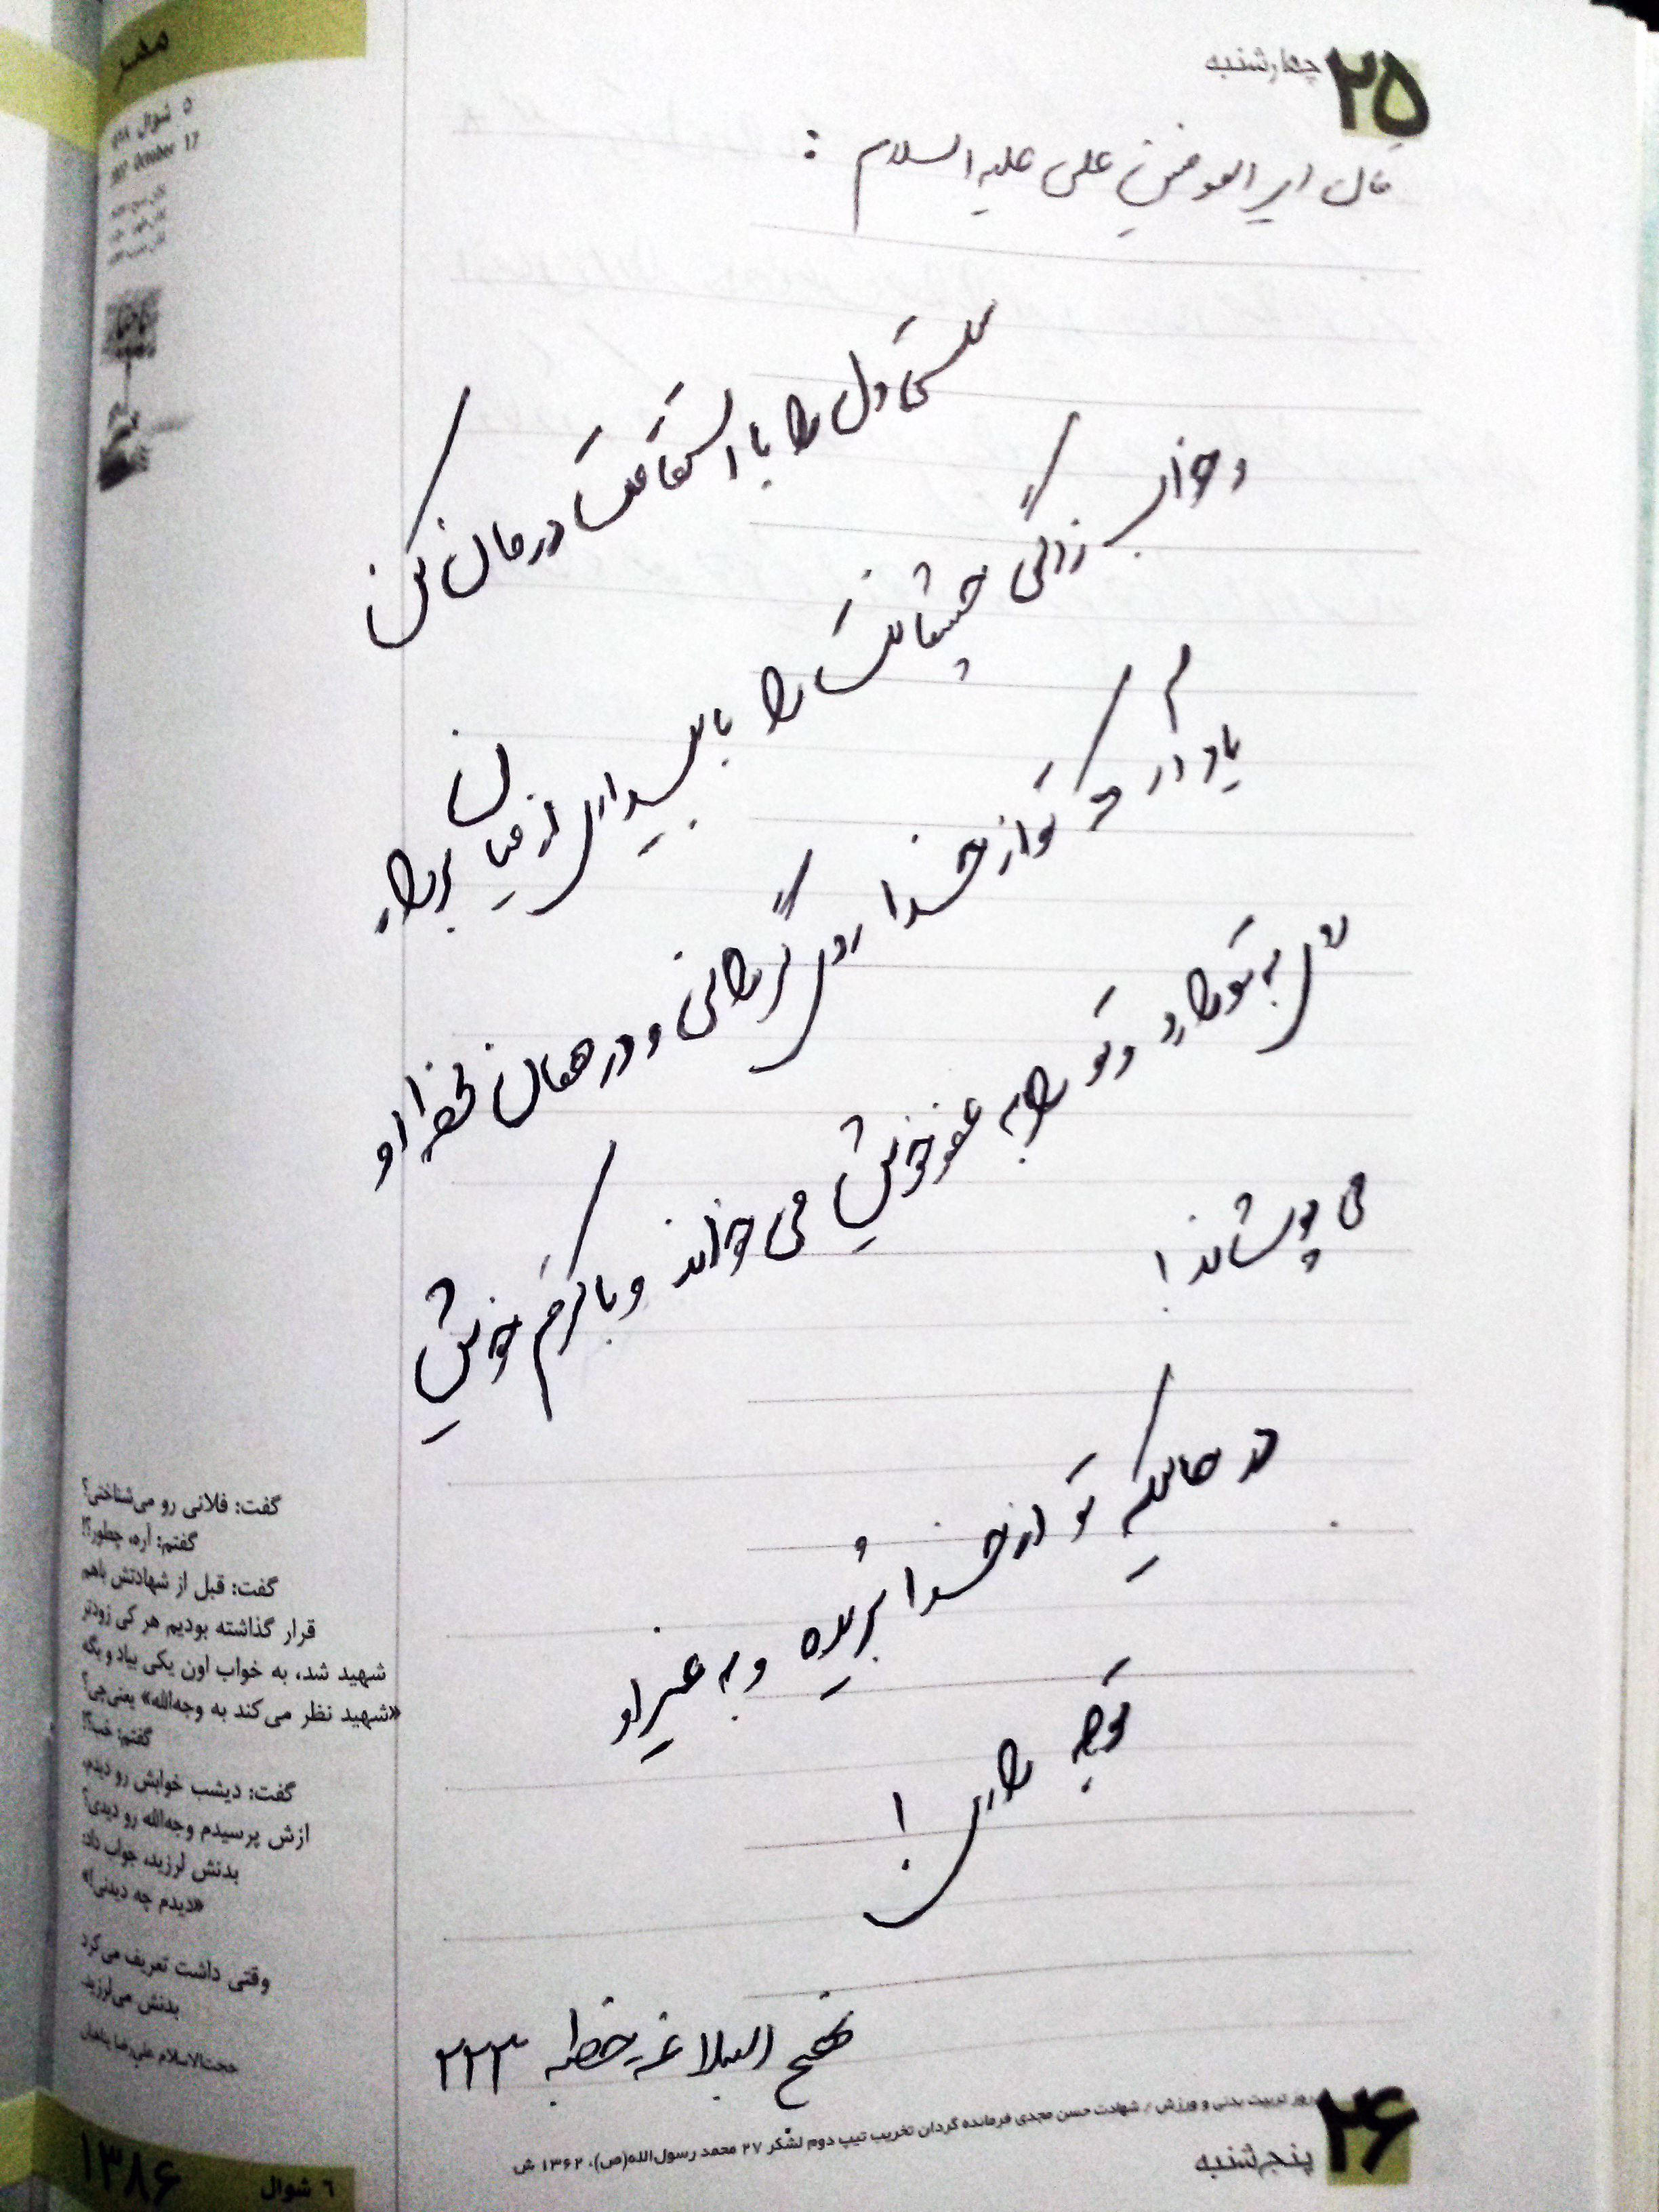 مهر
۵ شوال
October 17
۲۵
چهارشنبه
قال امیر المومنین علی علیه السلام :
سستی دل را با استقامت درمان کن
و خواب زدگی چشمانت را با بیداری از میان بردار
یاد آر که تو از خدا روی گردانی و در همان لحظه او
روی به تو دارد و تو را به عفو خویش می خواند و با کرم خویش
می پوشاند !
در حالیکه تو از خدا بُریده و به غیر او
توجه داری !
نهج البلاغه خطبه ۲۲۳
گفت: فلانی رو می‌شناختی؟
گفتم: آره، چطور؟!
گفت: قبل از شهادتش باهم
قرار گذاشته بودیم هر کی زودتر
شهید شد، به خواب اون یکی بیاد و بگه
«شهید نظر می‌کند به وجه‌الله» یعنی‌چی؟
گفتم: خب؟!
گفت: دیشب خوابش رو دیدم،
ازش پرسیدم وجه‌الله رو دیدی؟
بدنش لرزید، جواب داد:
«دیدم چه دیدنی!»
وقتی داشت تعریف می‌کرد
بدنش می‌لرزید.
حجت‌الاسلام علی‌رضا پناهیان
۲۶
پنج‌شنبه
روز تربیت بدنی و ورزش / شهادت حسن مجدی فرمانده گردان تخریب تیپ دوم لشکر ۲۷ محمد رسول‌الله(ص)، ۱۳۶۲ ش
۶ شوال
۱۳۸۶